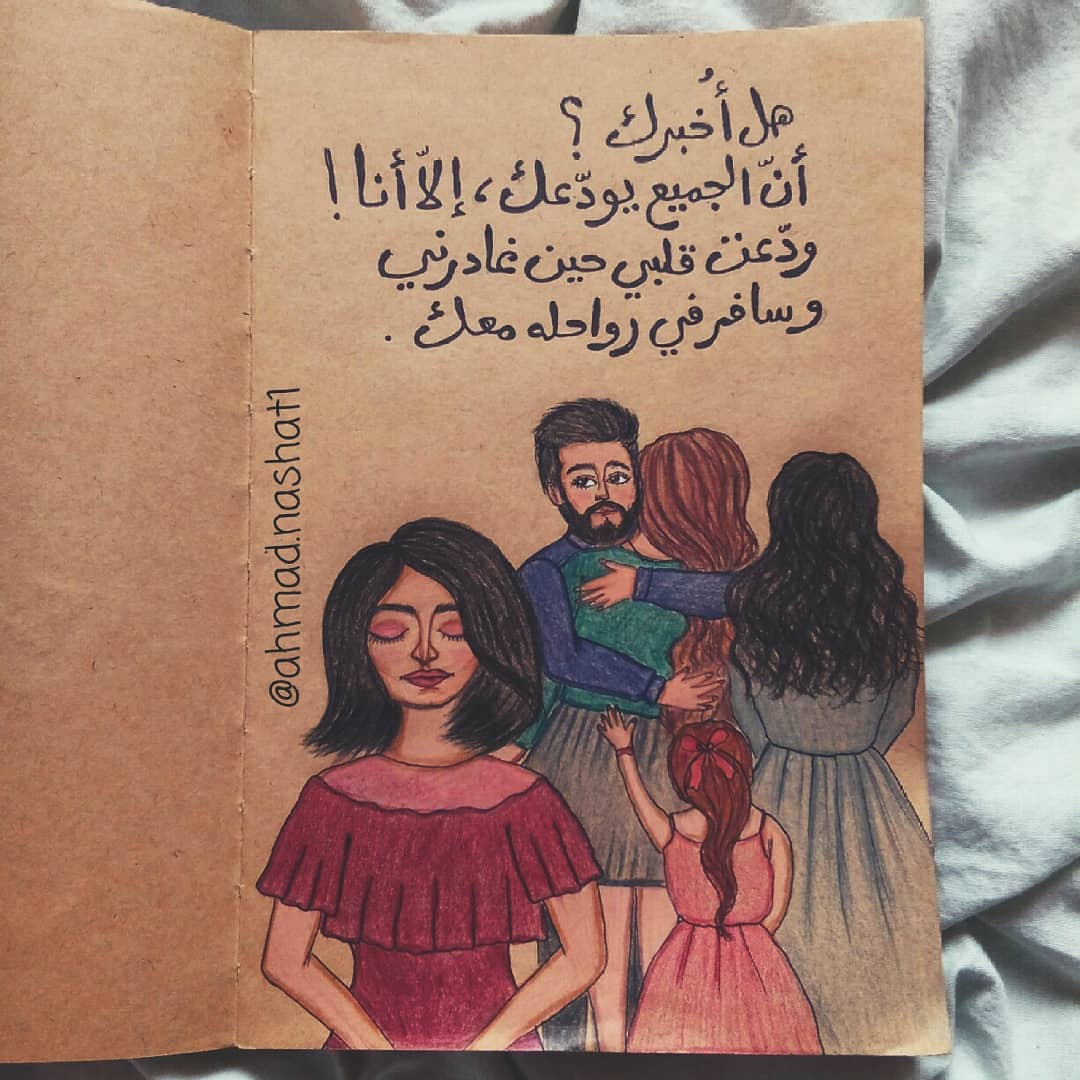 هل أُخبرك ؟
أنّ الجميع يودّعك، إلاّ أنا !
ودّعت قلبي حين غادرني
وسافر في رواحله معك .
@ahmad.nashat1